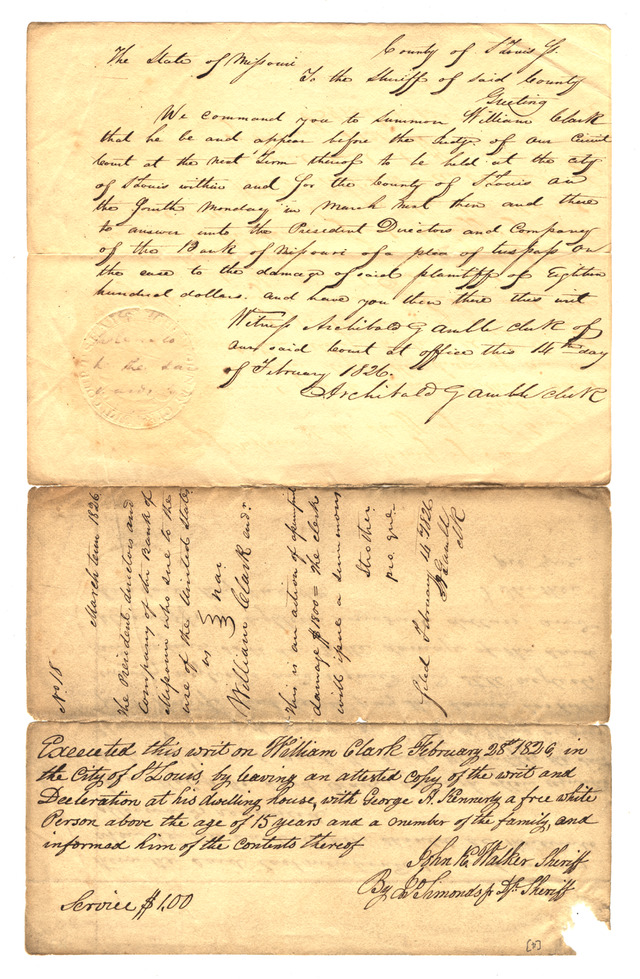 The State of Missouri County of St Louis Ss.
To the Sheriff of said County
Greeting
We command you to summon William Clark
that he be and appear before the Judge of our Circuit
Court at the next Term thereof to be held at the city
of St Louis within and for the County of St Louis on
the fourth Monday in March next then and there
to answer unto the President Directors and Company
of the Bank of Missouri of a plea of trespass on
the case to the damage of said plaintiff of Eighteen
hundred dollars. and have you then there this writ
Witness Archibald Gamble clerk of
our said Court at office this 14th day
of February 1826.
Archibald Gamble clerk
No 18
March term 1826
The President, directors and
company of the Bank of
Missouri who sue to the
use of the United States
vs
William Clark
This is an action of
damage $1800= The clerk
will issue a summons
Strother
pro que
filed February 14 1826
A Gamble
Clk
Executed this writ on William Clark February 28th 1826, in
the City of St Louis, by leaving an attested Copy of the writ and
Decleration at his dwelling house, with George H. Kennerly a free white
Person above the age of 15 years and a member of the family, and
informed him of the Contents thereof
John K Walker Sheriff
By Simonds jr Dy. Sheriff
Service $1.00
[3]